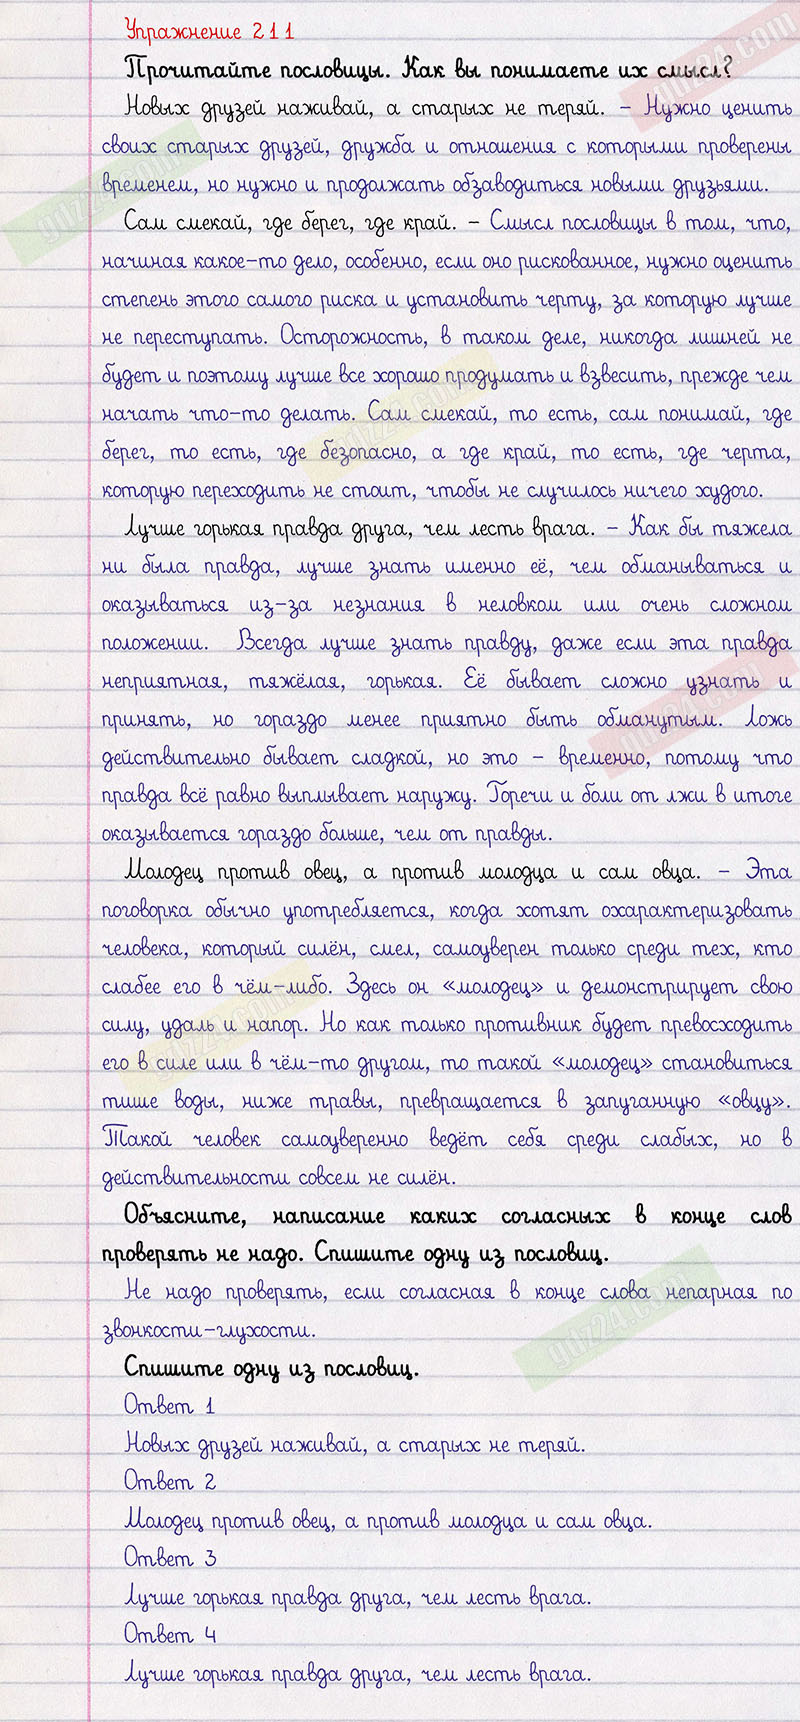 Упражнение 211
Прочитайте пословицы. Как вы понимаете их смысл?
Новых друзей наживай, а старых не теряй. – Нужно ценить
своих старых друзей, дружба и отношения с которыми проверены
временем, но нужно и продолжать обзаводиться новыми друзьями.
Сам смекай, где берег, где край. – Смысл пословицы в том, что,
начиная какое-то дело, особенно, если оно рискованное, нужно оценить
степень этого самого риска и установить черту, за которую лучше
не переступать. Осторожность, в таком деле, никогда лишней не
будет и поэтому лучше все хорошо продумать и взвесить, прежде чем
начать что-то делать. Сам смекай, то есть, сам понимай, где
берег, то есть, где безопасно, а где край, то есть, где черта,
которую переходить не стоит, чтобы не случилось ничего худого.
Лучше горькая правда друга, чем лесть врага. – Как бы тяжела
ни была правда, лучше знать именно её, чем обманываться и
оказываться из-за незнания в неловком или очень сложном
положении. Всегда лучше знать правду, даже если эта правда
неприятная, тяжёлая, горькая. Её бывает сложно узнать и
принять, но гораздо менее приятно быть обманутым. Ложь
действительно бывает сладкой, но это – временно, потому что
правда всё равно выплывает наружу. Горечи и боли от лжи в итоге
оказывается гораздо больше, чем от правды.
Молодец против овец, а против молодца и сам овца. – Эта
поговорка обычно употребляется, когда хотят охарактеризовать
человека, который силён, смел, самоуверен только среди тех, кто
слабее его в чём-либо. Здесь он «молодец» и демонстрирует свою
силу, удаль и напор. Но как только противник будет превосходить
его в силе или в чём-то другом, то такой «молодец» становиться
тише воды, ниже травы, превращается в запуганную «овцу».
Такой человек самоуверенно ведёт себя среди слабых, но в
действительности совсем не силён.
Объясните, написание каких согласных в конце слов
проверять не надо. Спишите одну из пословиц.
Не надо проверять, если согласная в конце слова непарная по
звонкости-глухости.
Спишите одну из пословиц.
Ответ 1
Новых друзей наживай, а старых не теряй.
Ответ 2
Молодец против овец, а против молодца и сам овца.
Ответ 3
Лучше горькая правда друга, чем лесть врага.
Ответ 4
Лучше горькая правда друга, чем лесть врага.
gdz24.com
gdz24.com
gdz24.com
gdz24.com
gdz24.com
gdz24.com